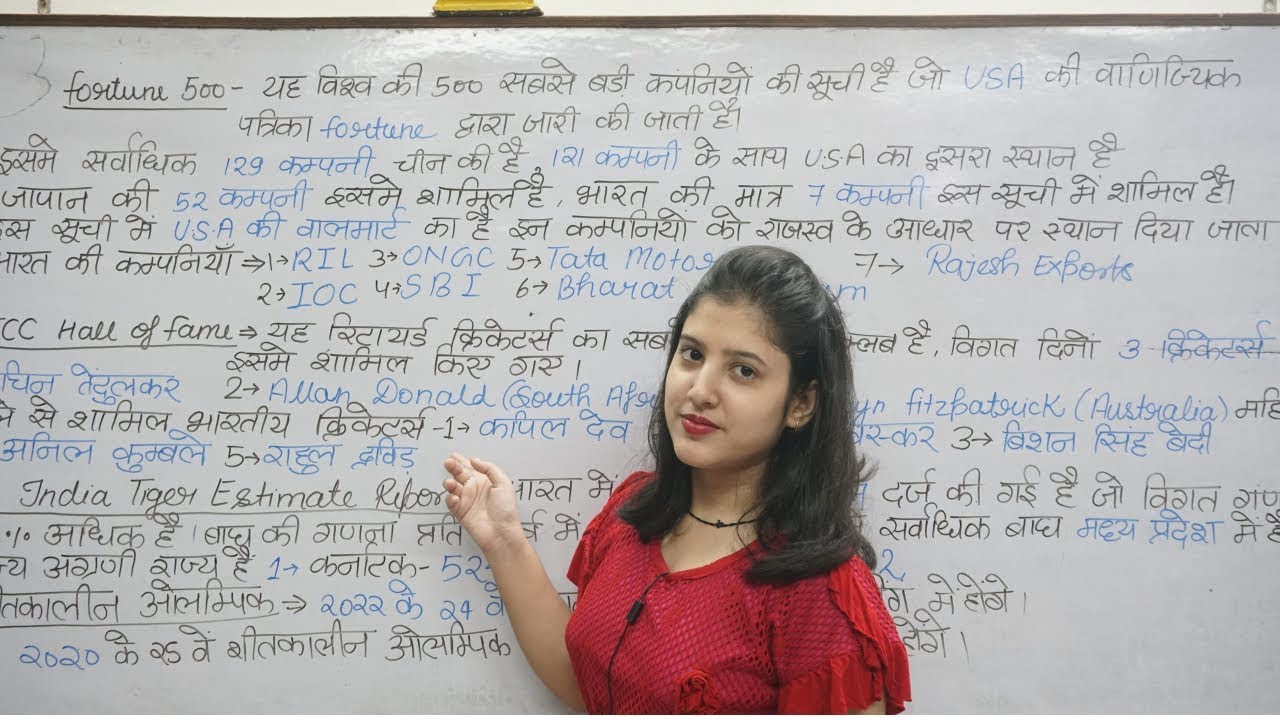 fortune 500 - यह विश्व की 500 सबसे बडी कंपनियों की सूची है जो USA की वाणिज्यिक
पत्रिका fortune द्वारा जारी की जाती है।
इसमे सर्वाधिक 129 कम्पनी चीन की है, 121 कम्पनी के साथ U.S.A का दूसरा स्थान है
जापान की 52 कम्पनी इसमे शामिल है, भारत की मात्र 7 कम्पनी इस सूची में शामिल है।
इस सूची में U.S.A की वालमार्ट का है इन कम्पनियों को राजस्व के आधार पर स्थान दिया जाता
भारत की कम्पनियाँ ⇒ 1→ RIL 3→ ONGC 5→ Tata Motor 7→ Rajesh Exports
2→ IOC 4→ SBI 6→ Bharat
ICC Hall of fame ⇒ यह रिटायर्ड क्रिकेटर्स का है, विगत दिनों 3 क्रिकेटर्स
इसमे शामिल किए गए।
सचिन तेंदुलकर 2→ Allan Donald (South fitzpatrick (Australia)
से शामिल भारतीय क्रिकेटर्स - 1→ कपिल देव 3→ बिशन सिंह बेदी
अनिल कुम्बले 5→ राहुल द्रविड़
India Tiger Estimate भारत में दर्ज की गई है जो विगत
% अधिक है। बाघ की गणना प्रति में सर्वाधिक बाघ मध्य प्रदेश में है
अग्रणी राज्य है 1→ कर्नाटक - 52
शीतकालीन ओलम्पिक ⇒ 2022 के 24 वे में होंगे।
2020 के 25 वे शीतकालीन ओलम्पिक होंगे।